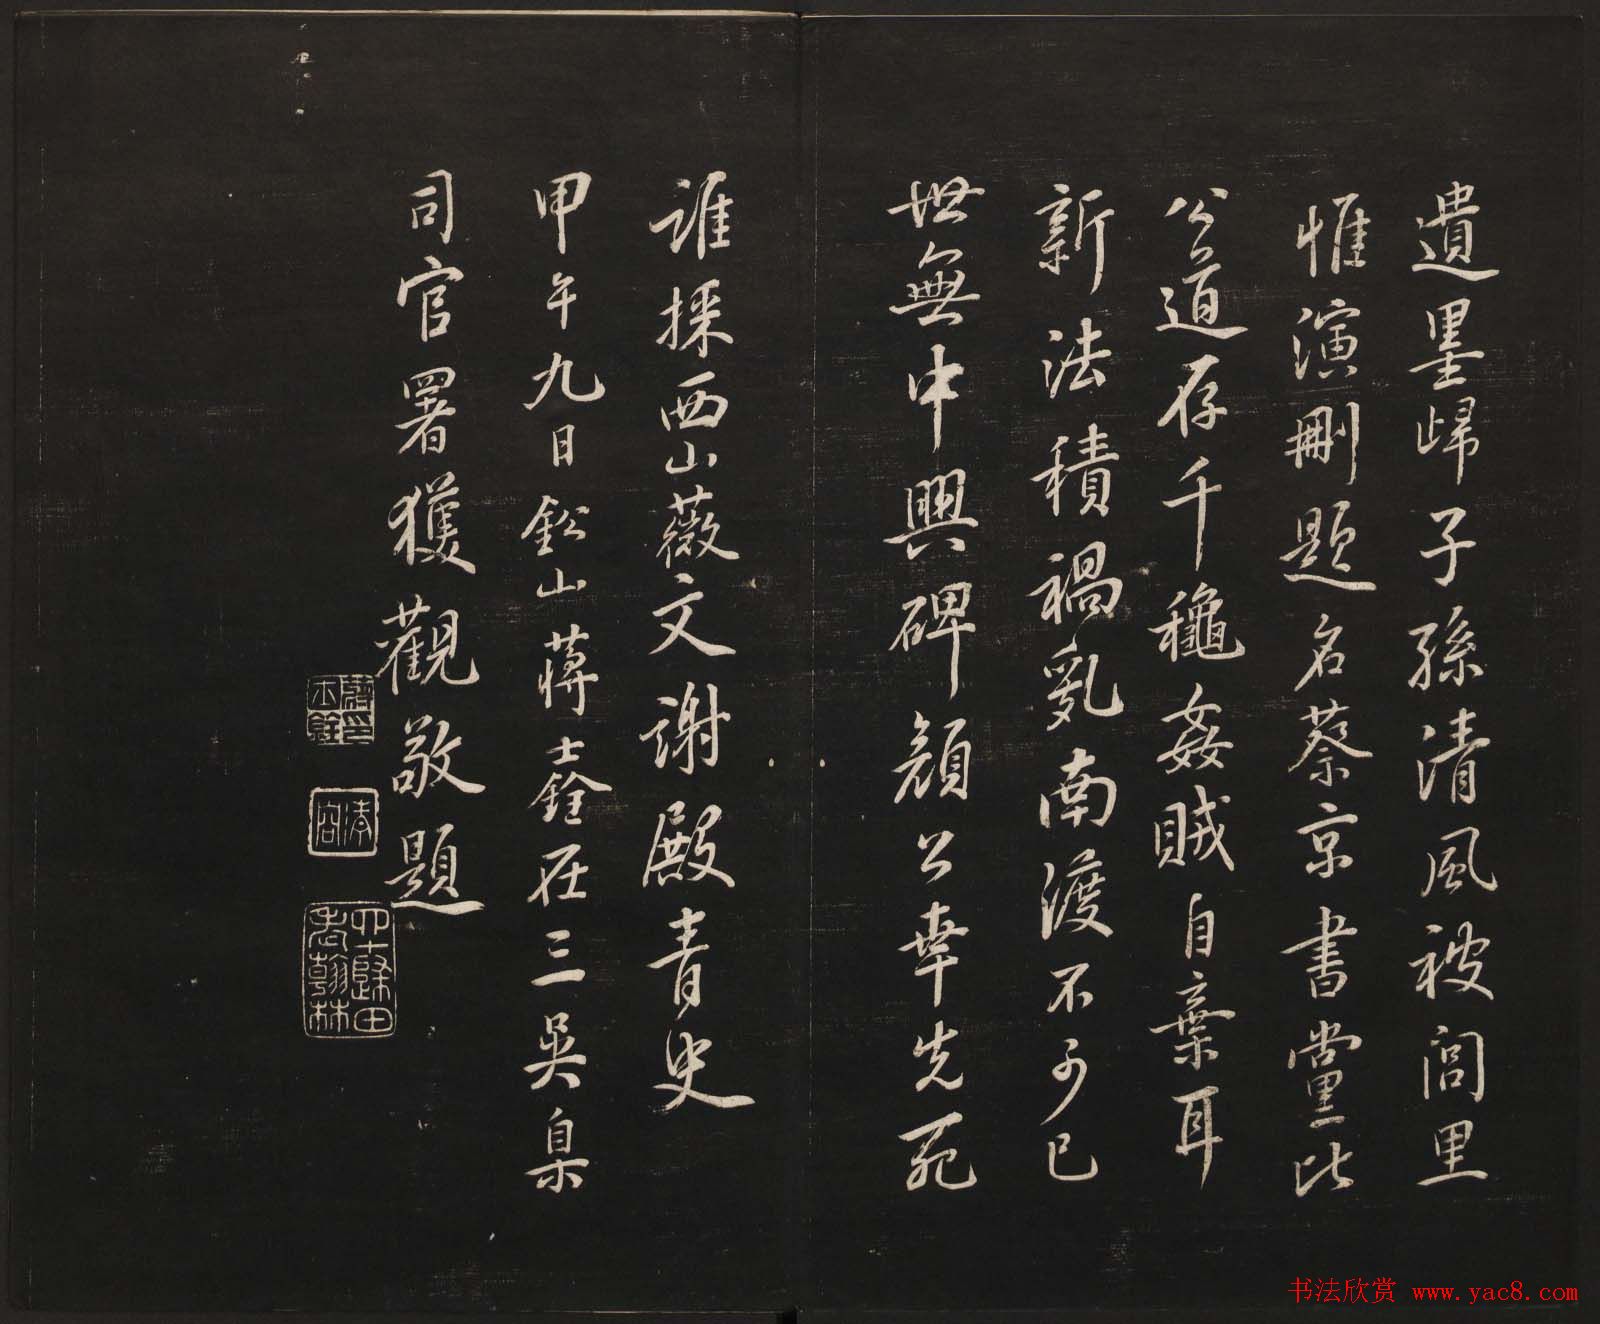 遺墨歸子孫清風被閭里
惟演刪題名蔡京書黨比
公道存千龝姦賊自棄耳
新法積禍亂南渡不可已
世無中興碑顏公幸先死
誰採西山薇文謝殿青史
甲午九日鈆山蔣士銓在三吳臬
司官署獲觀敬題
清容
四十歸田老翰林
书法欣赏 www.yac8.com